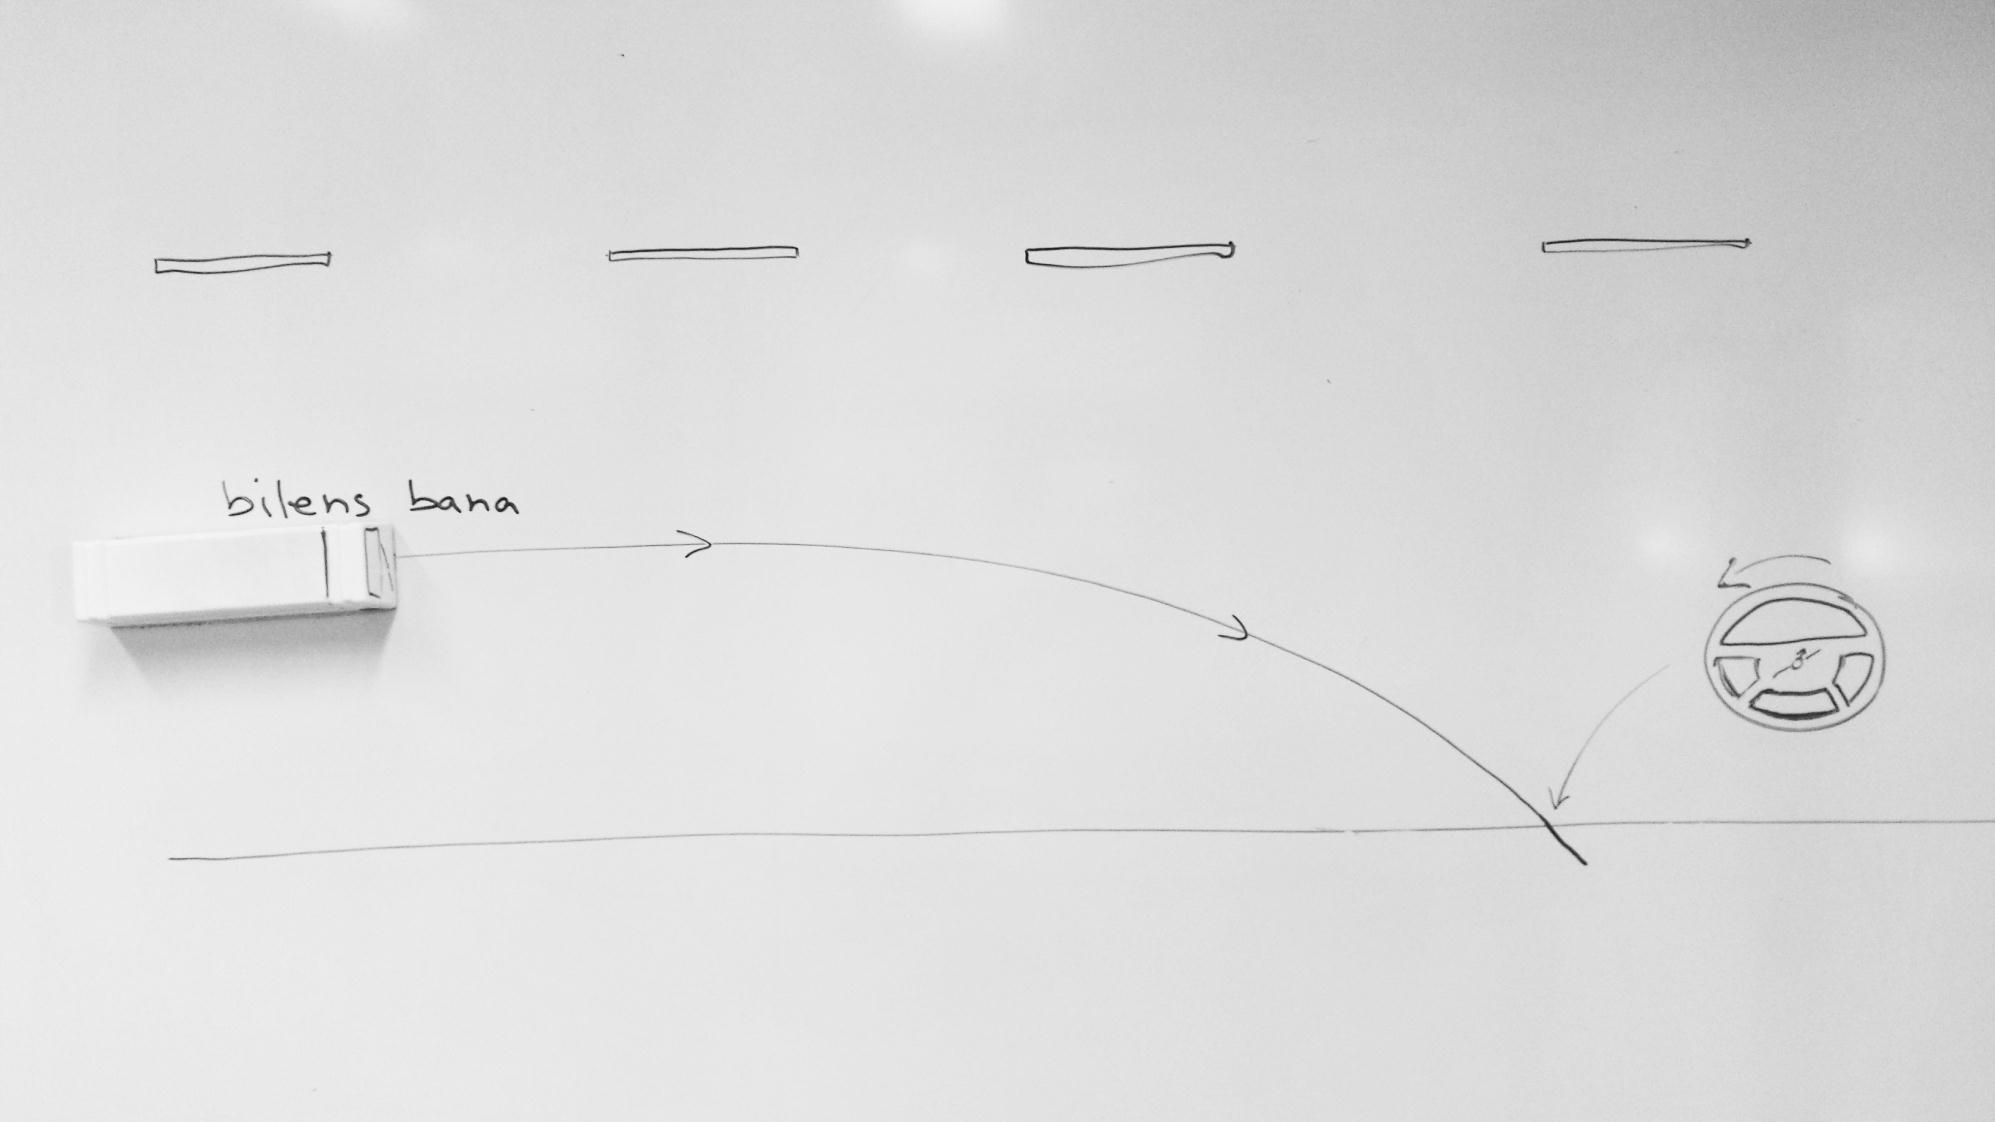 bilens bana